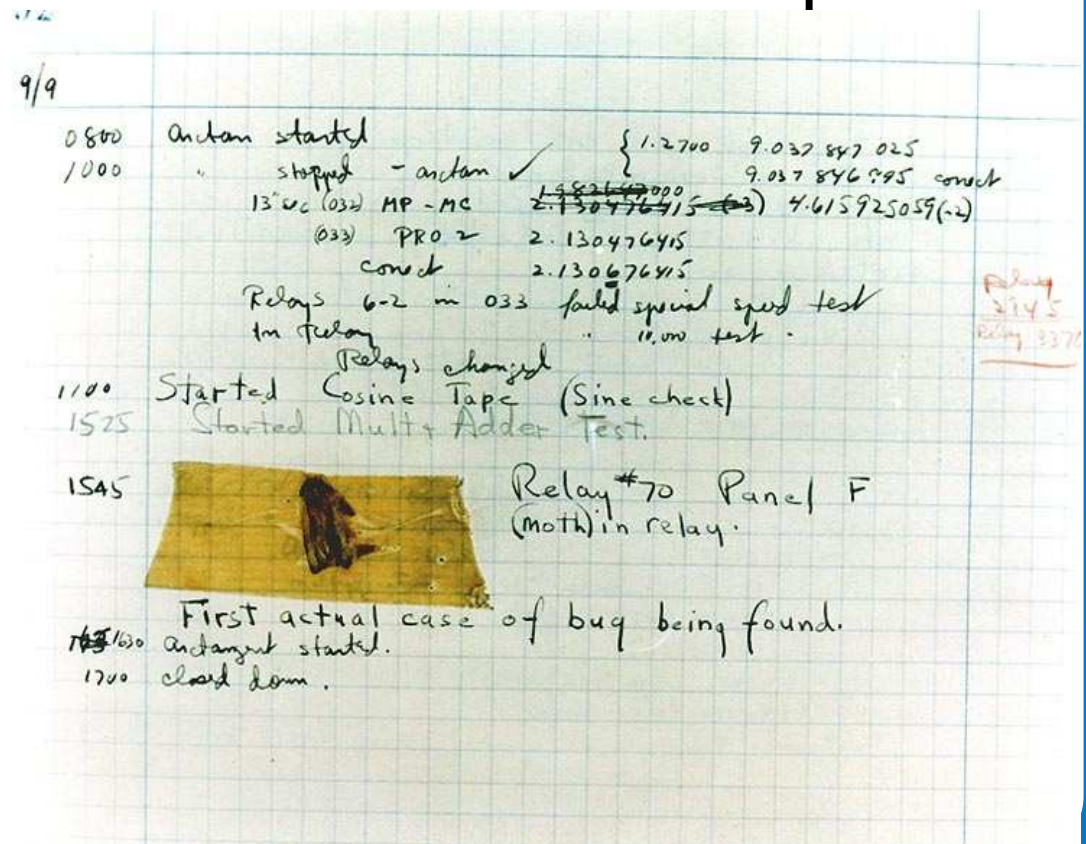 9/9
0800 Antan started
1000 " stopped - antan ✓ { 1.2700 9.037 847 025
9.037 846 995 correct
13"uc (032) MP - MC 2.130476415 (-3) 4.615925059(-2)
(033) PRO 2 2.130476415
correct 2.130676415
Relays 6-2 in 033 failed special speed test
In Relay " 10,000 test.
Relay
2145
Relay 3370
Relays changed
1100 Started Cosine Tape (Sine check)
1525 Started Mult + Adder Test.
1545 Relay #70 Panel F
(moth) in relay.
First actual case of bug being found.
1630 antangent started.
1700 closed down.